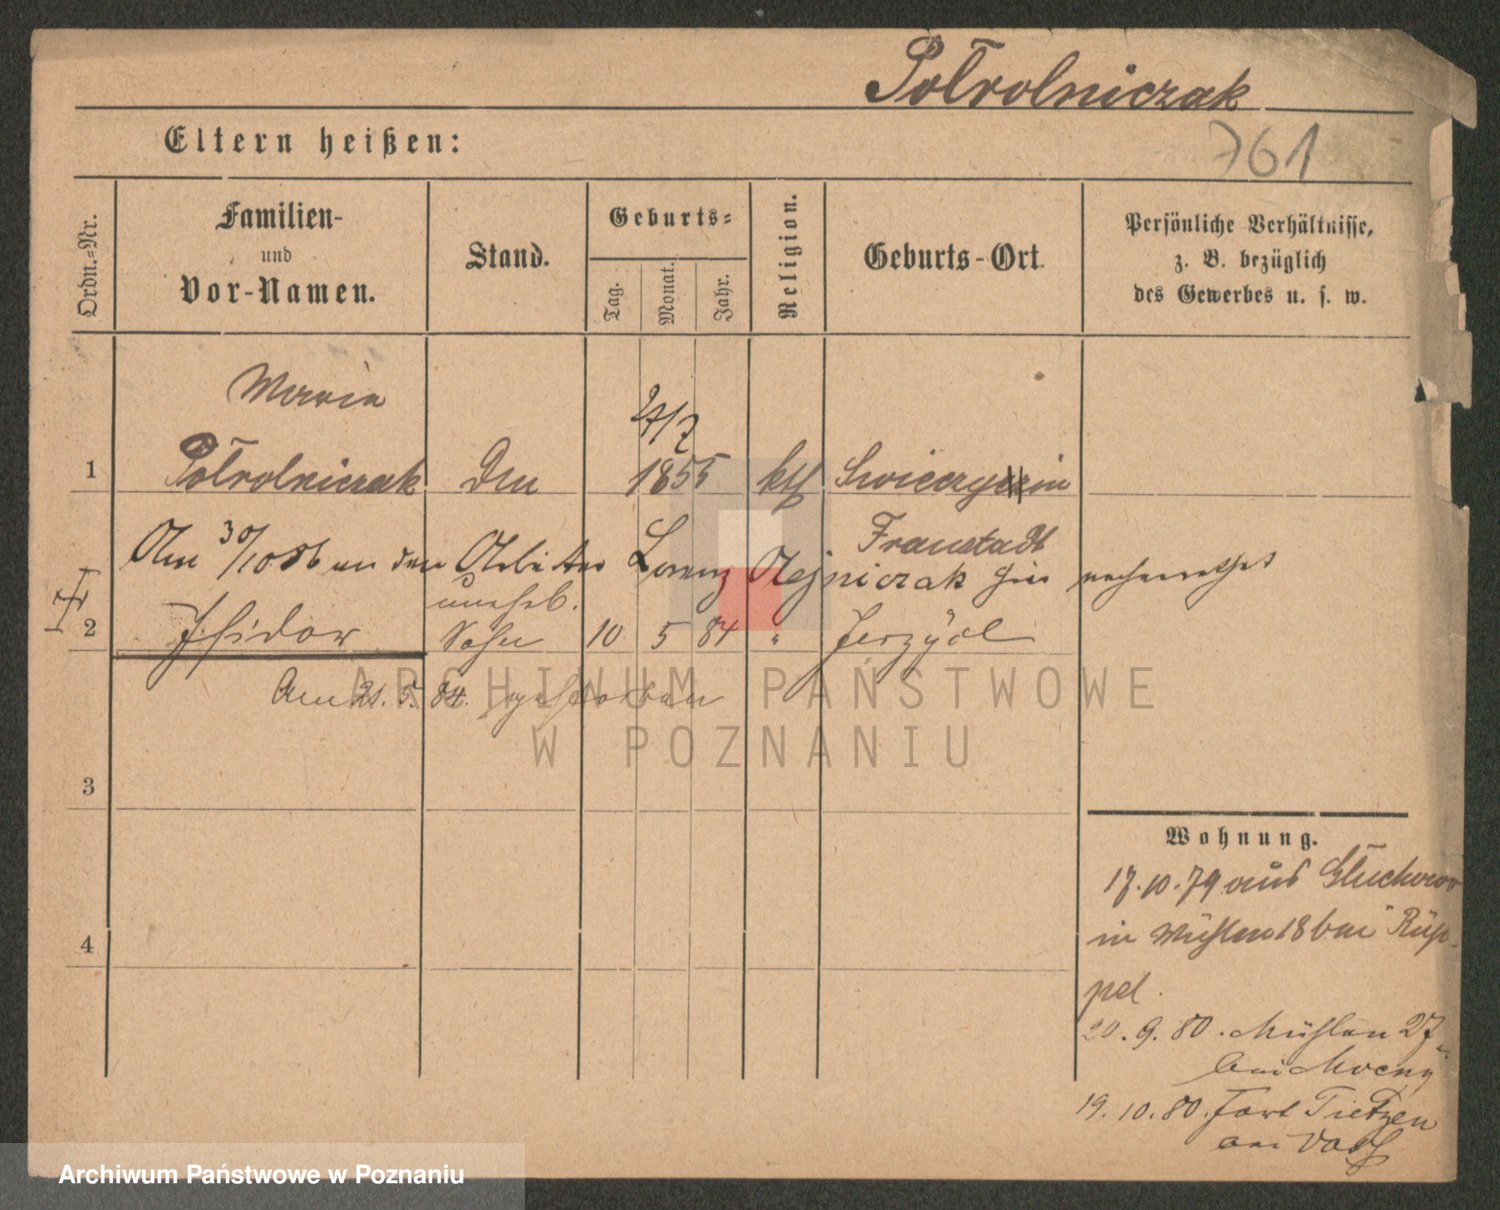 Półrolniczak
Eltern heißen:
761
Ordn.-Nr.
Familien-
und
Vor-Namen.
Stand.
Geburts-
Tag.
Monat.
Jahr.
Religion.
Geburts-Ort.
Persönliche Verhältnisse,
z. B. bezüglich
des Gewerbes u. s. w.
Maria
1 Półrolniczak 1855 kth
Fraustadt
Am 30/10 86 an den Arbeiter Lorenz hier verheirathet
unehel.
2 Isidor Sohn 10 5 84 " Jerzyce
Am 31.5.84. gestorben
ARCHIWUM PAŃSTWOWE
W POZNANIU
3
4
Wohnung.
17.10.79 aus
in Mühlen 18 bei Rüp-
pel.
20.9.80. Mühlen 27
bei Moceny
19.10.80. Fort Tietzen
bei
Archiwum Państwowe w Poznaniu